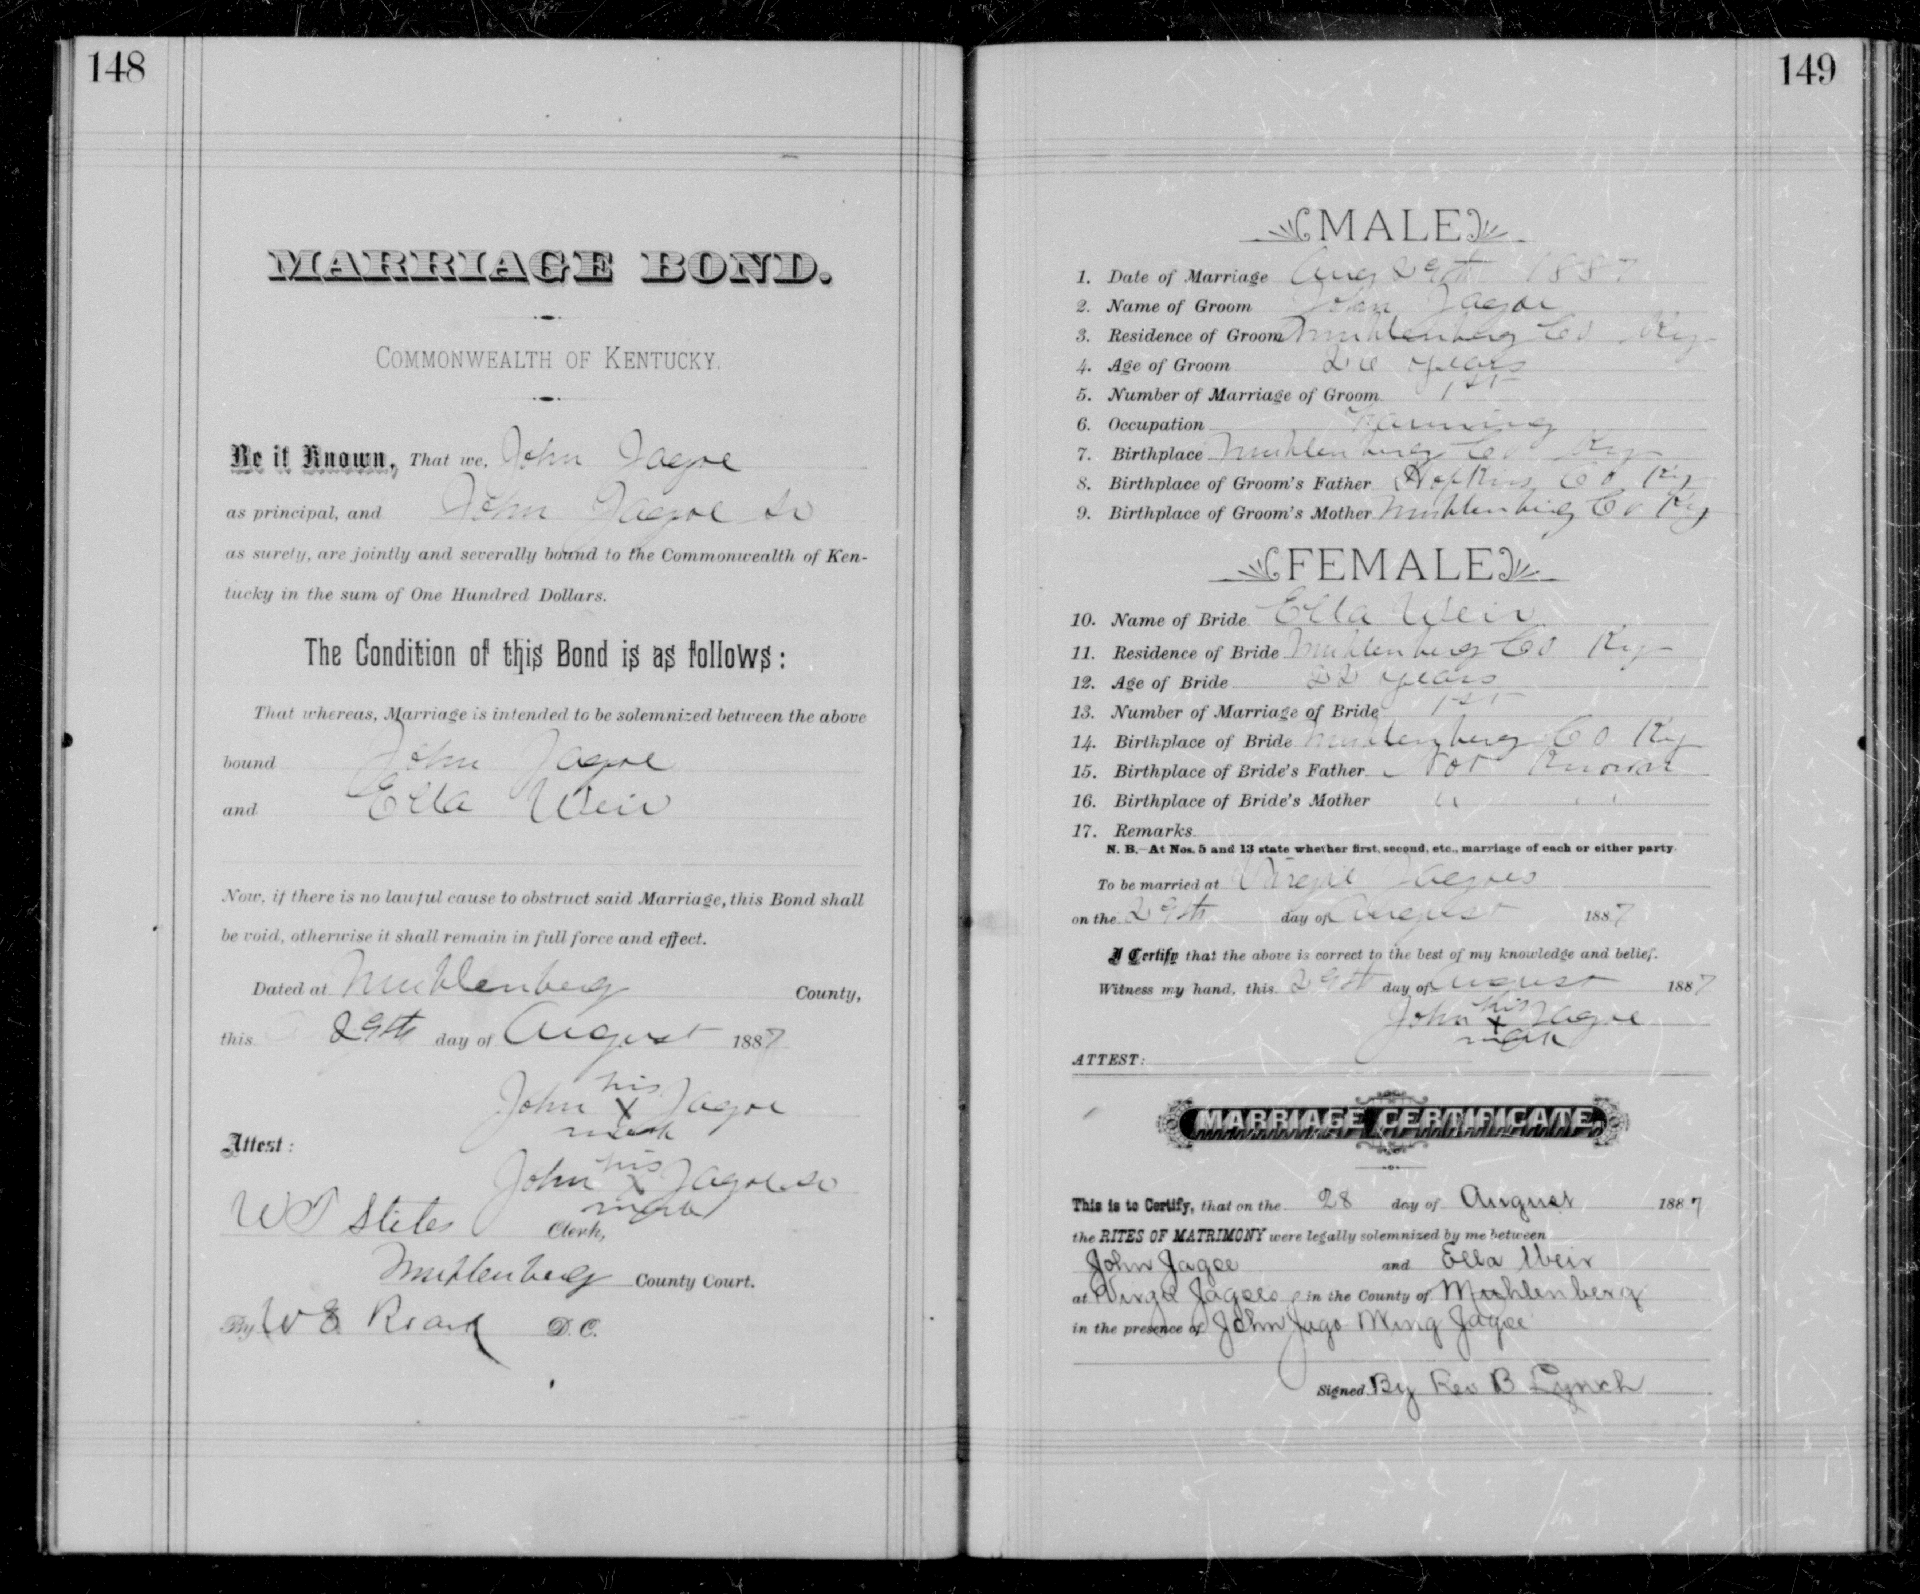 148
MARRIAGE BOND.
COMMONWEALTH OF KENTUCKY.
Be it Known, That we, John Jagoe
as principal, and John Jagoe Sr
as surety, are jointly and severally bound to the Commonwealth of Ken-
tucky in the sum of One Hundred Dollars.
The Condition of this Bond is as follows:
That whereas, Marriage is intended to be solemnized between the above
bound John Jagoe
and Ella Weir
Now, if there is no lawful cause to obstruct said Marriage, this Bond shall
be void, otherwise it shall remain in full force and effect.
Dated at Muhlenberg County,
this 29th day of August 1887
John his x mark Jagoe
Attest:
John his x mark Jagoe Sr
W T Stiles Clerk,
Muhlenberg County Court.
By W E D. C.
149
MALE
1. Date of Marriage Aug 29th 1887
2. Name of Groom John Jagoe
3. Residence of Groom Muhlenberg Co Ky
4. Age of Groom years
5. Number of Marriage of Groom 1st
6. Occupation Farming
7. Birthplace Muhlenberg Co Ky
8. Birthplace of Groom's Father Hopkins Co Ky
9. Birthplace of Groom's Mother Muhlenberg Co Ky
FEMALE
10. Name of Bride Ella Weir
11. Residence of Bride Muhlenberg Co Ky
12. Age of Bride 22 years
13. Number of Marriage of Bride 1st
14. Birthplace of Bride Muhlenberg Co Ky
15. Birthplace of Bride's Father Not Known
16. Birthplace of Bride's Mother " "
17. Remarks
N. B.—At Nos. 5 and 13 state whether first, second, etc., marriage of each or either party.
To be married at Virgil Jagoes
on the 29th day of August 1887
I Certify that the above is correct to the best of my knowledge and belief.
Witness my hand, this 29th day of August 1887
John his x mark Jagoe
ATTEST:
MARRIAGE CERTIFICATE.
This is to Certify, that on the 28 day of August 1887
the RITES OF MATRIMONY were legally solemnized by me between
John Jagoe and Ella Weir
at Virge Jagoes in the County of Muhlenberg
in the presence of John Jago Ming Jagoe
Signed By Rev B Lynch